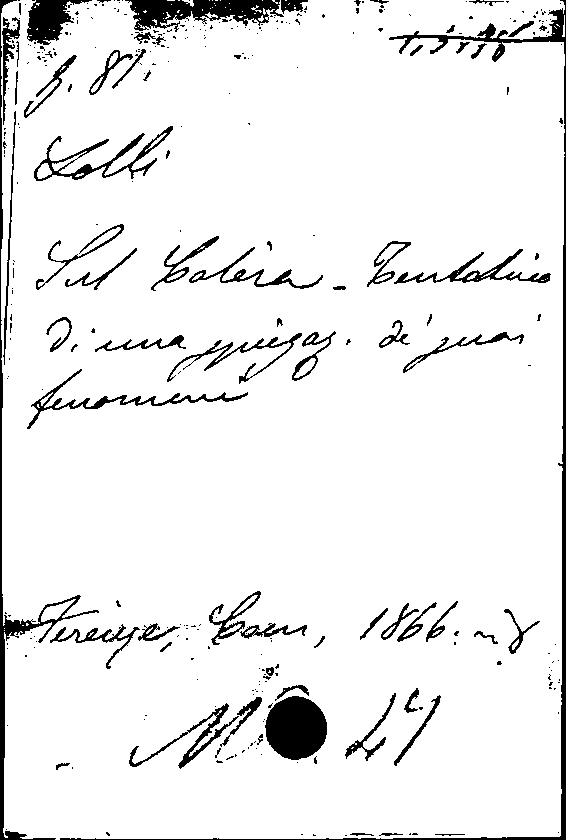 Lolli
Sul Colèra - Tentativo
di una spiegaz. de' suoi
fenomeni
Firenze, Coen, 1866. in 8